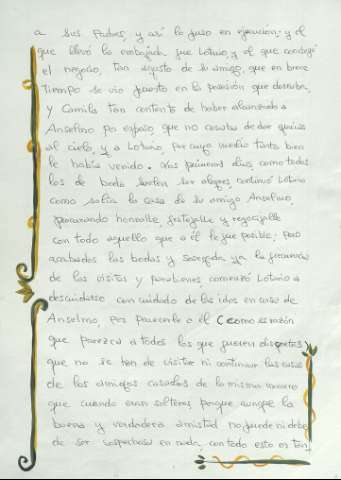 a sus Padres, y asi lo puso en ejecución; y el
que llevó la embajada fue Lotario, y el que concluyó
el negocio, tan agusto de su amigo, que en breve
Tiempo se vio puesto en la posesión que deseaba,
y Camila tan contenta de haber alcanzado a
Anselmo por esposo, que no cesaba de dar gracias
al cielo, y a Lotario, por cuyo medio tanto bien
le había venido. Los primeros dias, como todos
los de boda suelen ser alegres, continuó Lotario
como solía la casa de su amigo Anselmo,
procurando honralle, festejalle y regocijalle
con todo aquello que a él le fue posible; pero
acabadas las bodas y sosegada ya la frecuencia
de las visitas y parabienes, comenzó Lotario a
descuidarse con cuidado de las idas en casa de
Anselmo, por parecerle a él Ccomo es razón
que parezca a todos los que fueren discretos
que no se han de visitar ni continuar las casas
de los amigos casados de la misma manera
que cuando eran solteros; porque aunque la
buena y verdadera amistad no puede ni debe
de ser sospechosa en nada, con todo esto es tan